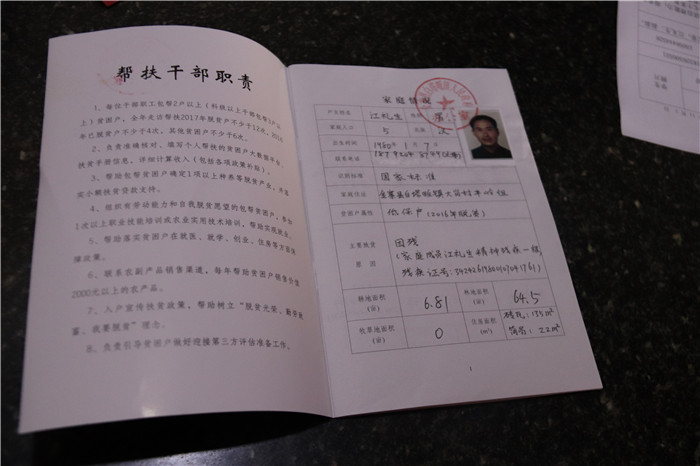 帮扶干部职责
1、每位干部职工包帮2户以上(科级以上干部包帮3户以
上)贫困户,全年走访帮扶2017年脱贫户不少于12次,2016
年已脱贫户不少于4次,其他贫困户不少于6次。
2、负责准确核对、填写个人帮扶的贫困户大数据平台、
扶贫手册信息,详细计算收入(包括各项政策补贴)。
3、帮助包帮贫困户确定1项以上种养等脱贫产业,并落
实小额扶贫贷款支持。
4、组织有劳动能力和自我脱贫愿望的包帮贫困户,参加
1次以上职业技能培训或农业实用技术培训,帮助实现就业。
5、帮助落实贫困户在就医、就学、创业、住房等方面保
障政策。
6、联系农副产品销售渠道,每年帮助贫困户销售价值
2000元以上的农产品。
7、入户宣传扶贫政策,帮助树立“脱贫光荣、勤劳致
富、我要脱贫”理念。
8、负责引导贫困户做好迎接第三方评估准备工作。
家庭情况
户主姓名 江礼生
家庭人口 5
出生时间 1960年1月7日
联系电话
识别标准 国家标准
家庭住址
贫困户属性 低保户(2016年脱贫)
主要致贫
原因
因残
(家庭成员江礼生精神残疾一级,
残疾证号:
耕地面积
(亩)
6.81
林地面积
(亩)
64.5
牧草地面积
(亩)
0
住房面积
(㎡)
砖瓦:135m²
22m²